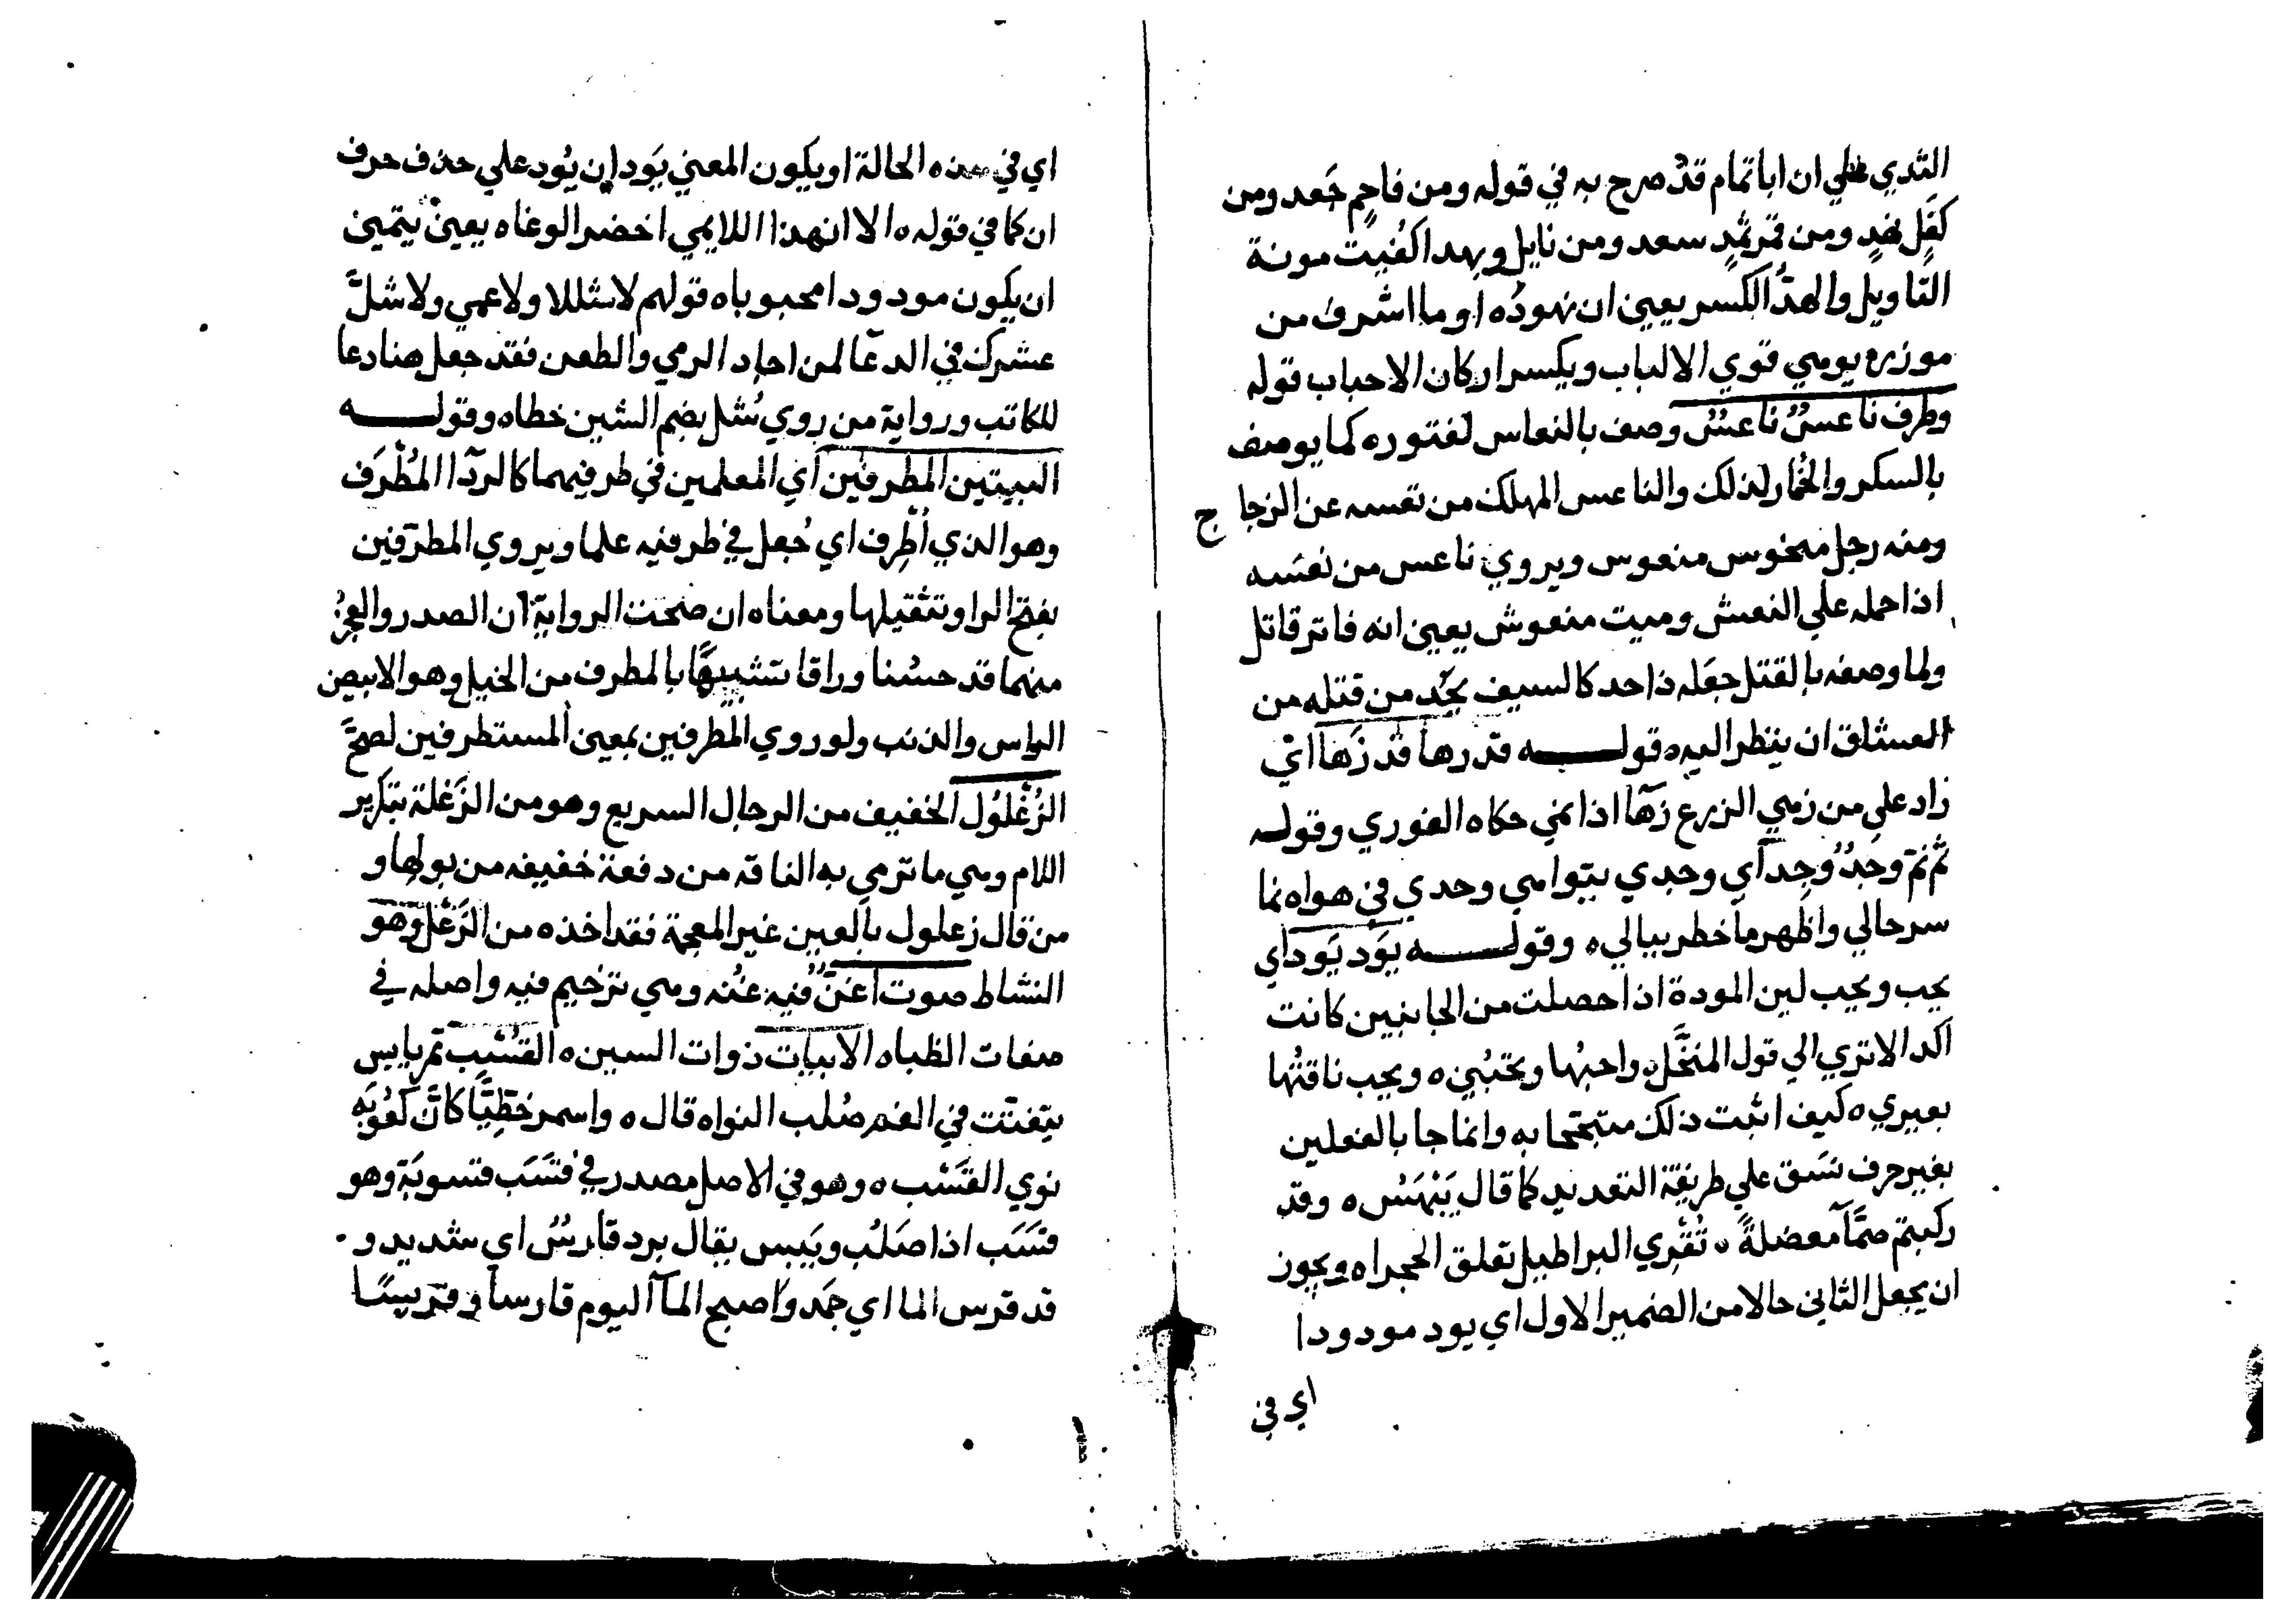 الثدي علي ان ابا تمام قدْ صرح به في قوله ومن فاحِمٍ جَعد ومن
كفَلٍ نهدٍ ومن قمر ثمد سعد ومن نايل وبهدا كُفيت مونة
التّاويل والهدُّ الكسر يعين ان نهودُه او ما اشرف من
موزره يوهي قوي الالباب ويكسر اركان الاحباب قوله
وطرف ناعسٌ ناعشٌ وصف بالنعاس لفتوره كما يوصف
بالسكر والخُمار لذلك والناعس المهلك من تعسه عن الزجاج
ومنه رجل منحوس منعوس ويروي ناعس من نعَسه
اذا حمله علي النعش وميت منعوش يعين انه فاتر قاتل
ولما وصفه بالقتل جعَله ذا حد كالسيف يحُد من قتله من
العشاق ان ينظر اليه ه قولــه قد رها قد زَها اي
زاد علي من زهي الزرع زهآ اذا نمي حكاه الغوري وقوله
ثم نمّ وجْدُ وُجِد اي وجدي بتوامي وحدي في هواه نما
سر حالي واظهر ما خطر ببالي ه وقولــه يوَد يَود اي
يحب ويحب لين المودة اذا حصلت من الجانبين كانت
اكد الا تري الي قول المنخَّل ه واحبُها وتحبُني ه ويحب ناقتُها
بعيري ه كيف اثبت ذلك متبجحا به وانما جا بالفعلين
بغير حرف نسَق علي طريقة التعديد كما قال يَبْهَسُ ه وقد
ركبتم صمّآ معضلةً ه تُفْري البراطيل تفلق الحجرا ه ويجوز
ان يجعل الثاني حالا من الضمير الاول اي يود مودودا
اي في
اي في هذه الحالة او يكون المعني يَود ان يُود علي حذف حرف
ان كما في قوله ه الا انهذا اللايمي احضر الوغا ه يعين يتمين
ان يكون مودودا محبوبا ه قولهم لا شللا ولا عمي ولا شلَّ
عشرك في الدعّا لمن اجاد الرمي والطعن فقد جعل هنا دعا
للكاتب ورواية من روي تُشل بضم الشين خطا ه وقولــه
البيتين المطرفين اي المعلمين في طرفيهما كالردآ المُطْرَف
وهو الذي اُطْرِف اي جُعل في طرفيه علما ويروي المطرّفين
بفتح الرا وتثقيلها ومعناه ان صحت الرواية ان الصدر والعجزُ
منهما قد حسُنا وراقا تشبيهًا بالمطرف من الخيل وهو الابيض
الراس والذنب ولو روي المطرفين بمعين المستطرفين لصحَّ
الزُغْلُول الخفيف من الرجال السريع وهو من الزَغلة بتكرير
اللام وهي ما ترمي به الناقه من دفعة خفيفه من بولها و
من قال زعلول بالعين غير المعجمة فقد اخذه من الزَعَل وهو
النشاط صوت اغنّ فيه غُنه وهي ترخيم فيه واصله في
صفات الظبا ه الابيات ذوات السين ه القسْب تمر يابس
يتفتت في الفم صُلب النواه قال ه واسمر خطّيًّا كانّ كعُوبَه
نوي القسْب ه وهو في الاصل مصدر في قسَب قسوبَة وهو
قسَب اذا صَلُب ويَبِس يقال برد قارسٌ اي شديد و
قد قرس الما اي جمَد واصبح المآ اليوم قارسا وقريسًا